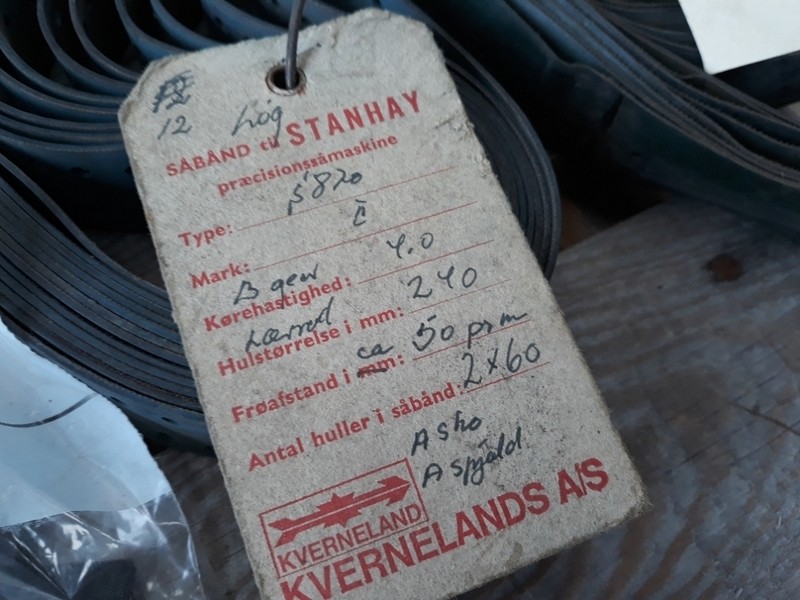 12 Løg
SÅBÅND til STANHAY
præcisionssåmaskine
Type: S870
Mark: II
B gear
Kørehastighed: 4.0
Lærred
Hulstørrelse i mm: 240
Frøafstand i mm: ca 50 pr m
Antal huller i såbånd: 2x60
A sko
A spjæld
KVERNELAND
KVERNELANDS A/S